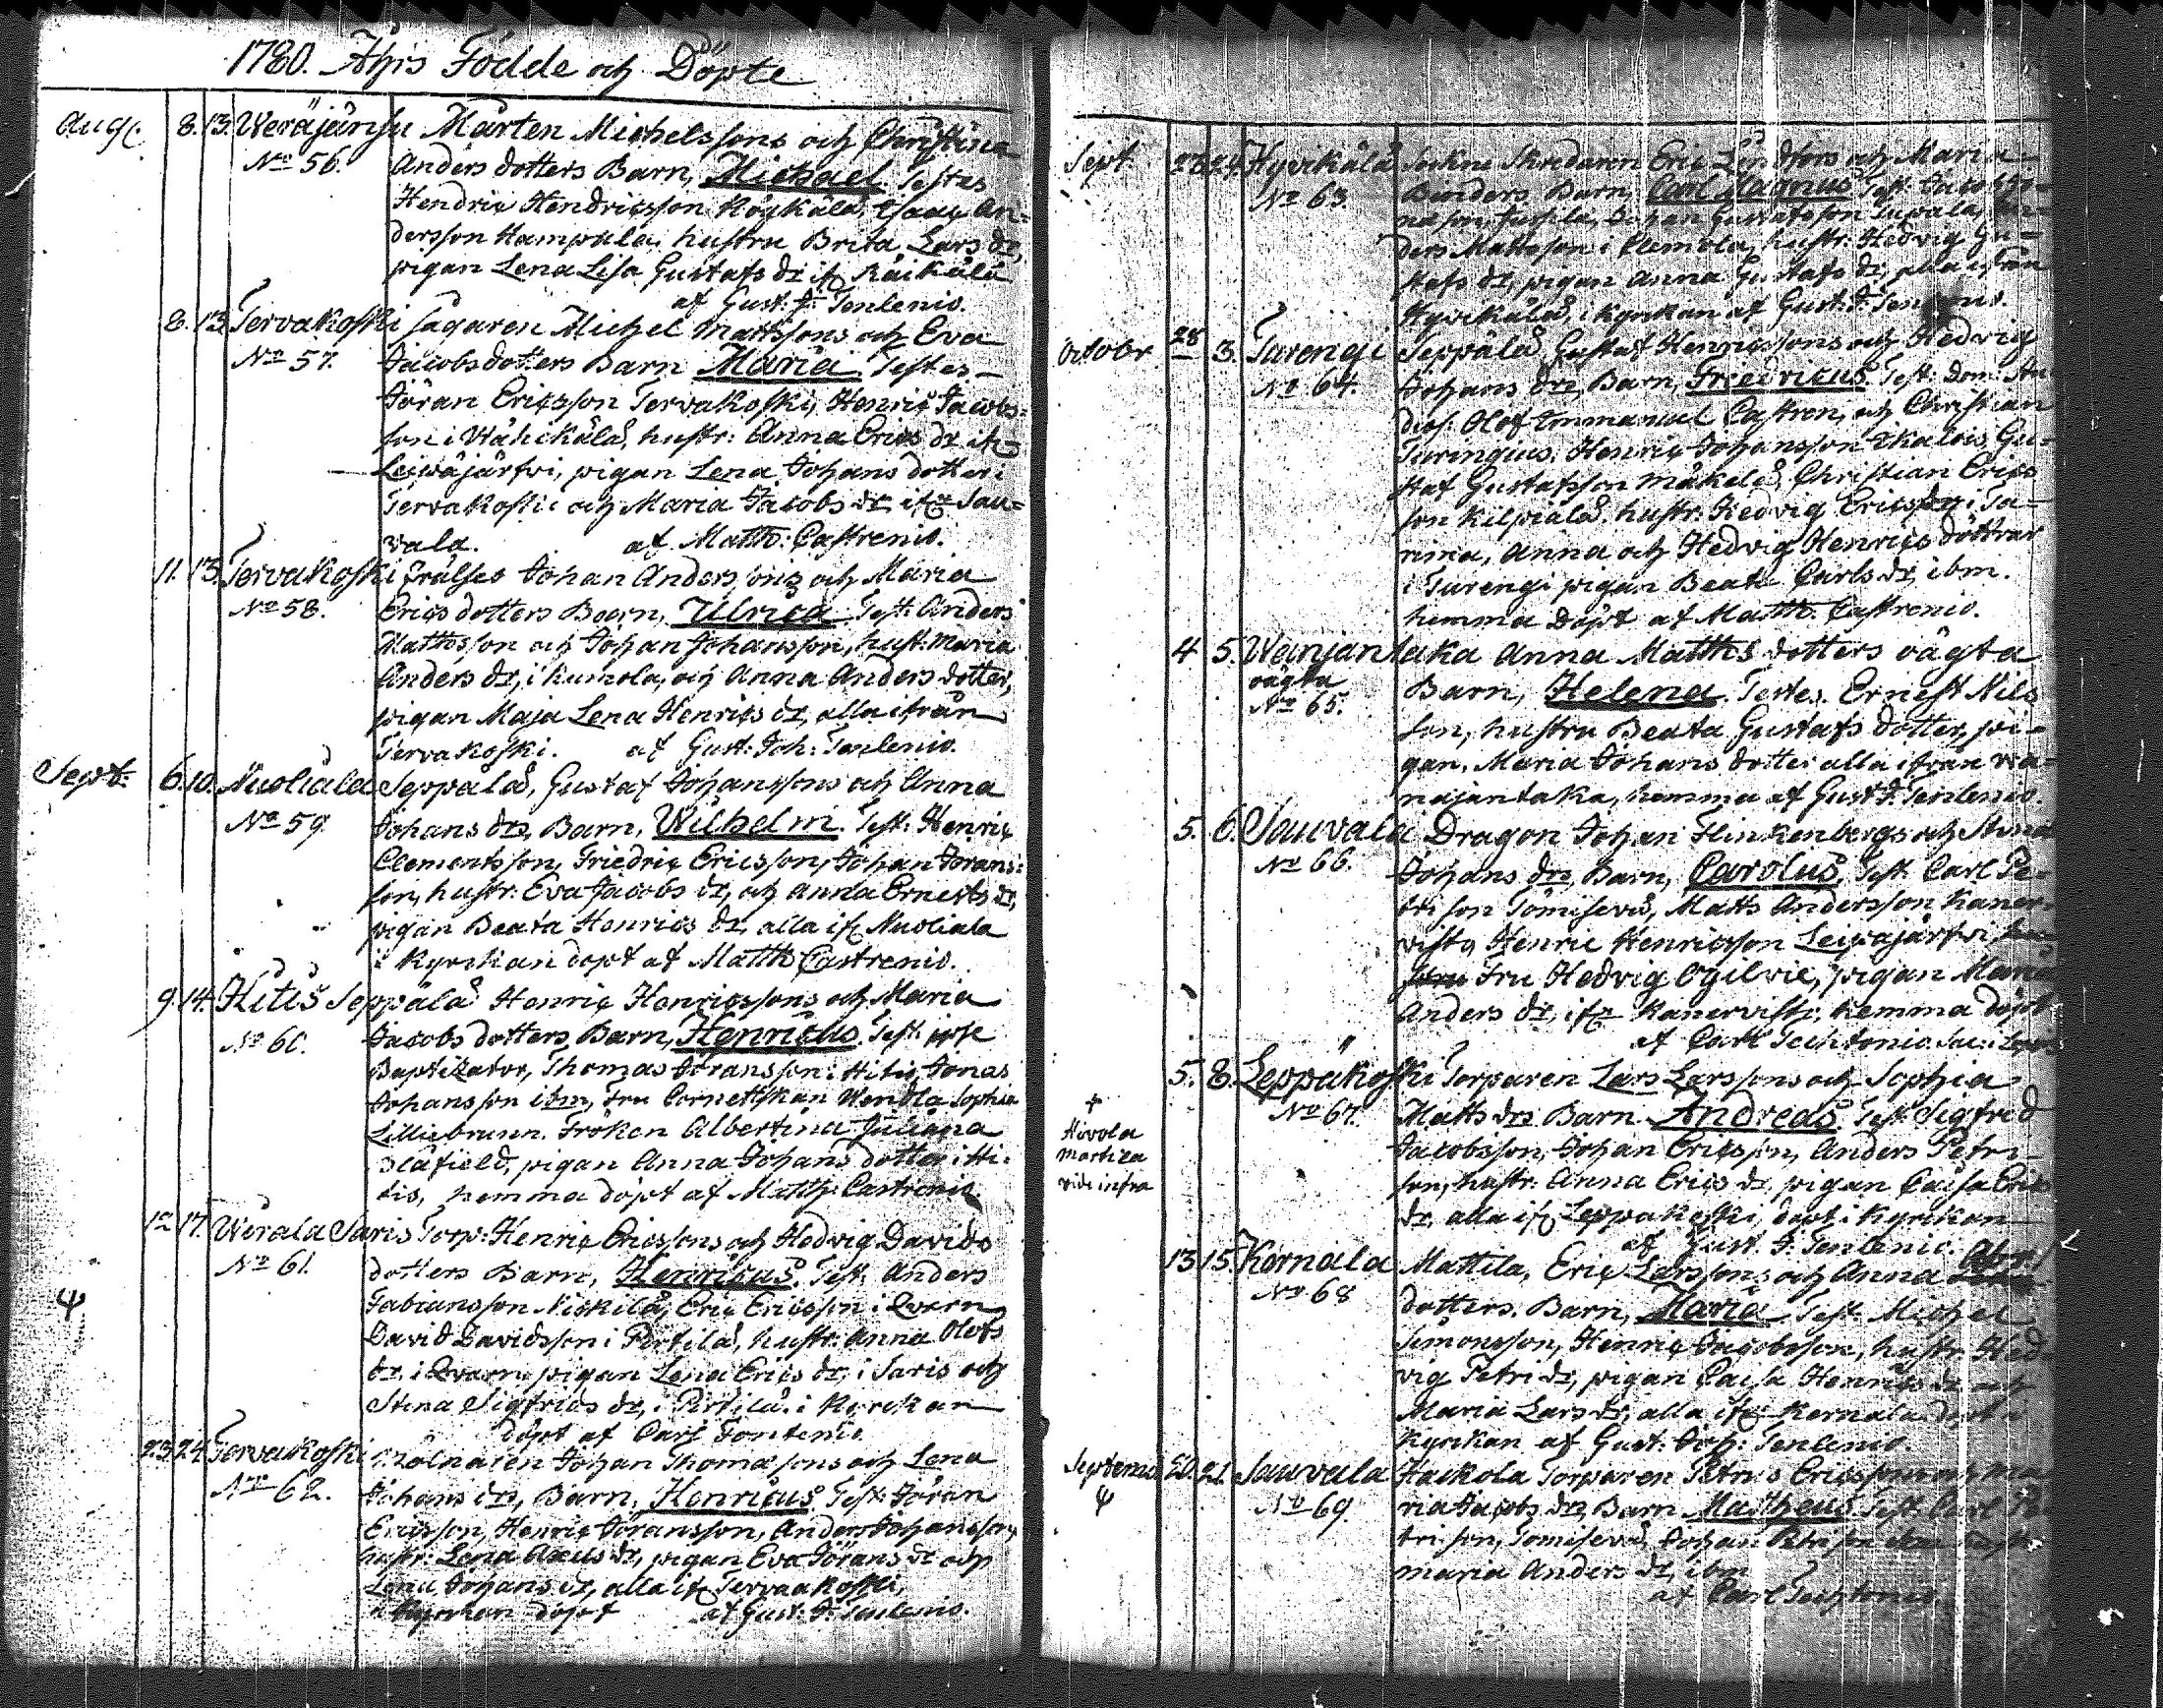 1780. Åhrs Födde och Döpte
Aug. 8. 13. Weräjänsu Mårten Michelssons och Christina
No 56. Anders dotters Barn, Michael. Testes
Hendric Hendricsson Högkälä, Isaac An=
dersson Hampula, hustru Brita Lars dr,
pigan Lena Lisa Gustafs dr if. Räikälä
af Gust. J. Tenlenio.
8. 13. Tervakoski sågaren Michel Mattssons och Eva
No 57. Jacobsdotters Barn Maria. Testes
Jöran Ericsson Tervakoski, Henric Jacobs=
son i Wähikälä, hustr: Anna Erics dr if
Leiwäjärfvi, pigan Lena Johans dotter i
Tervakoski och Maria Jacobs dr ifr Sau=
vala. af Matth: Castrenio.
11. 13. Tervakoski frälses Johan Anderssons och Maria
No 58. Erics dotters Barn, Ulrica. Test: Anders
Mattsson och Johan Johansson, hust: Maria
Anders dr, i Kumola, och Anna Anders dotter,
pigan Maja Lena Henrics dr, alla ifrån
Tervakoski. af Gust: Joh: Tenlenio.
Sept: 6. 10. Nuoliala Seppälä, Gustaf Johanssons och Anna
No 59. Johans drs, Barn, Wilhelm. Test: Henric
Clementsson, Friedric Ericsson, Johan Jörans=
son, hustr: Eva Jacobs dr, och Anna Ernests dr,
pigan Beata Henrics dr, alla if. Nuoliala
i Kyrckan döpt af Matth Castrenio.
9. 14. Hitis Seppälä Henric Henricssons och Maria
No 60. Jacobs dotters Barn, Henricus. Test: ipse
Baptizator, Thomas Göransson i Hitis, Jonas
Johansson ibm, Fru Cornettskan Wendla Sophia
Lilliebrunn. Fröken Albertina Juliana
Blåfield, pigan Anna Johans dotter i Hi=
tis, hemma döpt af Matth: Castrenio.
12 17. Wirala Saris Torp: Henric Ericssons och Hedvig Davids
No 61. dotters Barn, Henricus. Test: Anders
Fabiansson Niskilä, Eric Ericsson i Qvarn
ψ David Davidsson i Pertilä, hustr: Anna Olofs
dr, i Qvarn, pigan Lena Erics dr, i Saris och
Stina Sigfrids dr, i Pertilä i Kyrckan
döpt af Carl Fontenio.
23. 24. Tervakoski Mölnaren Johan Thomassons och Lena
No 62. Johans drs, Barn, Henricus. Test: Jöran
Ericsson, Henric Jöransson, Anders Johansson,
hustr: Lena Axels dr, pigan Eva Jörans dr och
Lena Johans dr, alla if. Tervaakoski,
i Kyrckan döpt af Gust. J. Tenlenio.
Sept 23 24. Hyvikälä Sockne Skredaren Eric Lindfors och Maria
No 63. Benders Barn, Carl Magnus Test: Jacob
Jussila, Johan Gustafsson Lupala, An=
ders Mattsson i Clemola, hustr: Hedvig Gu=
stafs dr, pigan Anna Gustafs dr, alla ifrån
Hyvikälä, i Kyrckan af Gust: J. Tenlenio.
October 28 3. Turengi Seppälä, Gustaf Henricssons och Hedvig
No 64. Johans drs, Barn, Fredricus. Test: Dom: Stu
dios: Olof Emmanuel Castren, och Christian
Turingius. Henric Johansson Ikalois, Gu=
staf Gustafsson Mäkelä, Christian Erics
son Kilpiälä, hustr: Hedvig Ericsdr i Ta=
rima, Anna och Hedvig Henrics döttrar
i Turengi pigan Beata Carls dr, ibm.
hemma döpt af Matth. Castrenio.
4 5. Wänjäntaka Anna Matths dotters oägta
oägta
No 65. Barn, Helena. Testes. Ernest Nils
son, hustru Beata Gustafs dotter, pi=
gan, Maria Johans dotter alla ifrån wä=
näjäntaka, hemma af Gust. J. Tenlenio.
5. 6. Sauvala Dragon Johan Flinkenbergs och Stina
No 66. Johans drs, Barn, Carolus. Test: Carl Pe=
tri son Tömisevä, Matts Andersson Kaner=
visto, Henric Henricsson Leiwäjärfvi,
Fru Hedvig Ogilvie, pigan Maria
Anders dr, ifr Kanervisto, hemma döpt
af Carl Techtonio.
5. 8. Leppäkoski Torparen Lars Larssons och Sophia
No 67. Matts drs Barn Andreas. Test: Sigfrid
+
Hivola
Marttila
vide infra
Jacobsson, Johan Ericsson, Anders Petri
son, hustr: Anna Erics dr, pigan Caisa Erics
dr, alla if Leppäkoski, döpt i Kyrckan
af Gust. J. Tenlenio.
13 15. Kernala Mattila, Eric Larssons och Anna Abr:
No 68 dotters Barn, Maria. Test: Michel
Simonsson, Henric Jacobsson, hustr: Hed=
vig Petri dr, pigan Caisa Henrics dr och
Maria Lars dr, alla ifr Kernala döpt i
Kyrckan af Gust: Joh: Tenlenio.
Septemb ψ 20. 21. Sauvala Hackola Torparen Petrus Ericssons och Ma
No 69. ria Jacobs drs Barn Mattheus. Test: Carl Pe=
tri son, Tömisevä, Johan Petri son
Maria Anders dr, ibm
af Carl Techtonio